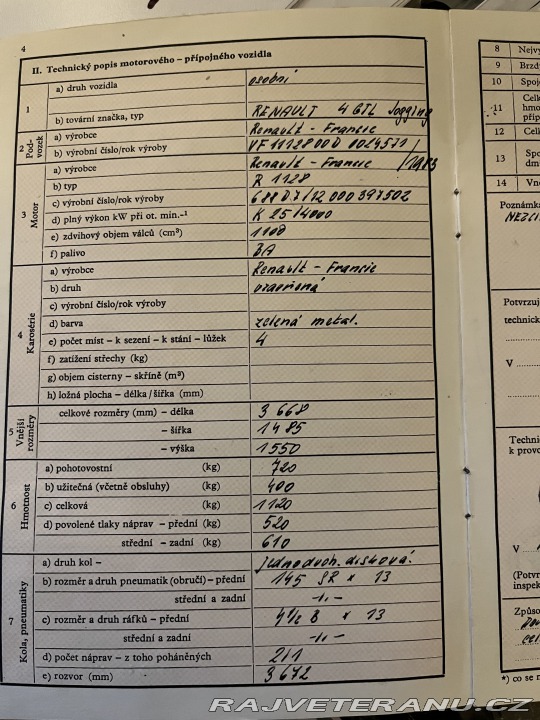 4
II. Technický popis motorového – přípojného vozidla
1 a) druh vozidla osobní
b) tovární značka, typ RENAULT 4 GTL Jogging
2 Pod-vozek a) výrobce Renault - Francie
b) výrobní číslo/rok výroby /1983
3 Motor a) výrobce Renault - Francie
b) typ R 1128
c) výrobní číslo/rok výroby
d) plný výkon kW při ot. min.-1 K 25/4000
e) zdvihový objem válců (cm³) 1108
f) palivo BA
4 Karosérie a) výrobce Renault - Francie
b) druh
c) výrobní číslo/rok výroby
d) barva zelená metal.
e) počet míst – k sezení – k stání – lůžek 4
f) zatížení střechy (kg)
g) objem cisterny – skříně (m³)
h) ložná plocha – délka/šířka (mm)
5 Vnější rozměry celkové rozměry (mm) – délka 3668
– šířka 1485
– výška 1550
6 Hmotnost a) pohotovostní (kg) 720
b) užitečná (včetně obsluhy) (kg) 400
c) celková (kg) 1120
d) povolené tlaky náprav – přední (kg) 520
střední – zadní (kg) 610
7 Kola, pneumatiky a) druh kol – jednoduch. disková.
b) rozměr a druh pneumatik (obručí) – přední 145 SR x 13
střední a zadní -„-
c) rozměr a druh ráfků – přední 4½ B x 13
střední a zadní -„-
d) počet náprav – z toho poháněných 2/1
e) rozvor (mm)
8 Nejvy
9 Brzd
10 Spoj
11 Celk
hmo
příp
12 Celk
13 Spo
dm
14 Vně
Poznámk
Potvrzuj
technick
V
Techni
k provo
V
(Potvr
inspek
Způso
*) co se n
RAJVETERANU.CZ